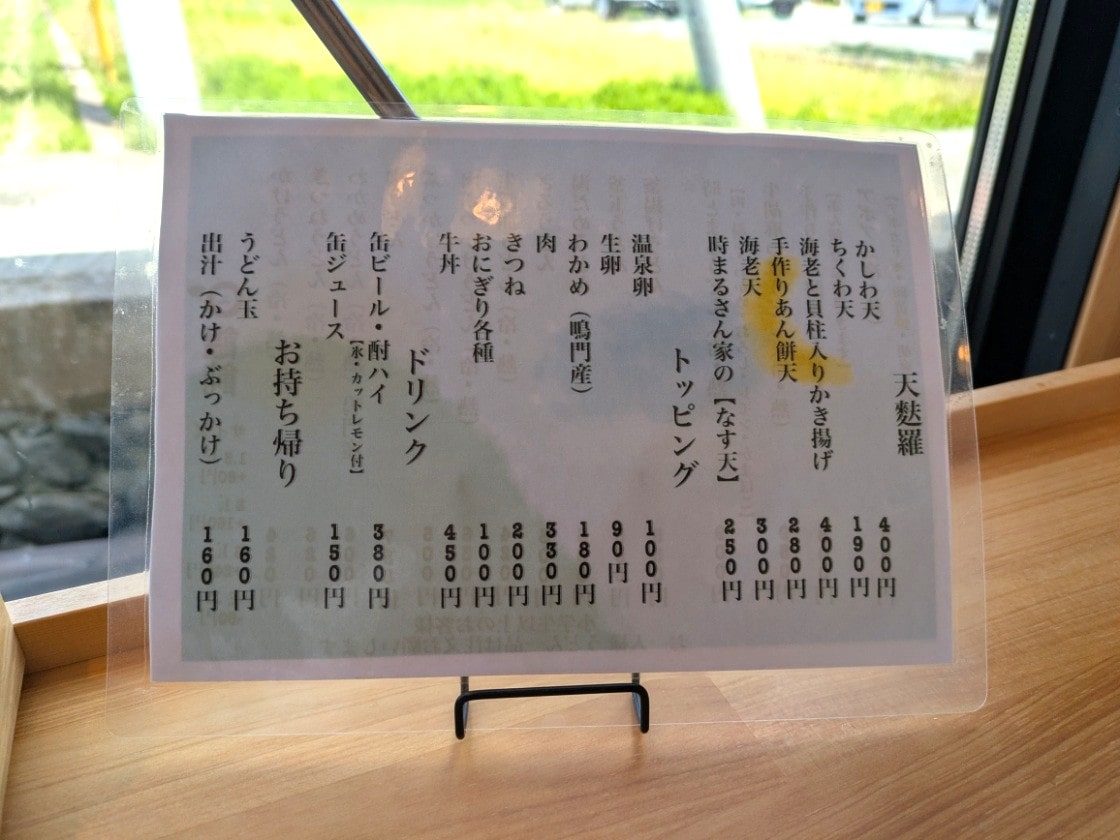 天麩羅
かしわ天 400円
ちくわ天 190円
海老と貝柱入りかき揚げ 400円
手作りあん餅天 280円
海老天 300円
時まるさん家の【なす天】 250円
トッピング
温泉卵 100円
生卵 90円
わかめ（鳴門産） 180円
肉 330円
きつね 200円
おにぎり各種 100円
牛丼 450円
ドリンク
缶ビール・酎ハイ 380円
【氷・カットレモン付】
缶ジュース 150円
お持ち帰り
うどん玉 160円
出汁（かけ・ぶっかけ） 160円